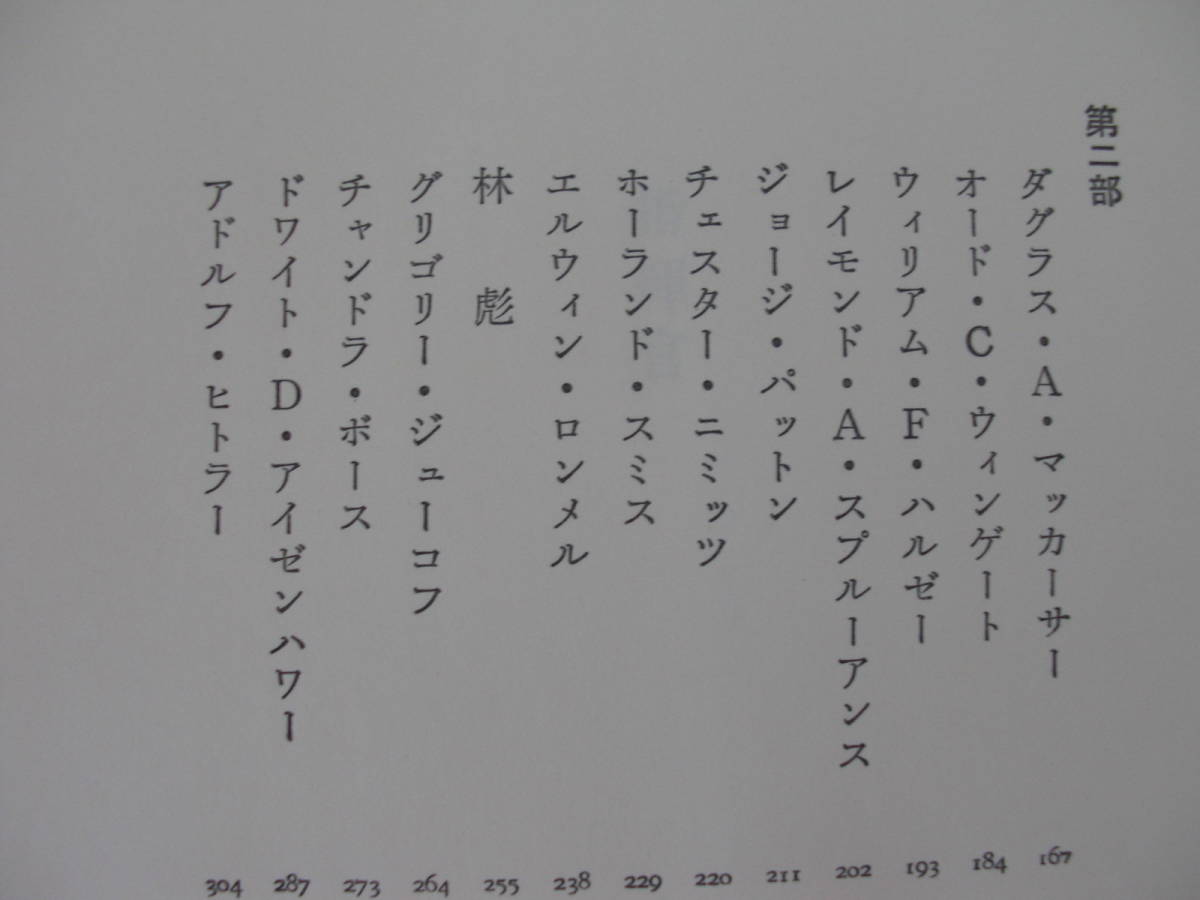 第二部
ダグラス・A・マッカーサー 167
オード・C・ウィンゲート 184
ウィリアム・F・ハルゼー 193
レイモンド・A・スプルーアンス 202
ジョージ・パットン 211
チェスター・ニミッツ 220
ホーランド・スミス 229
エルウィン・ロンメル 238
林 彪 255
グリゴリー・ジューコフ 264
チャンドラ・ボース 273
ドワイト・D・アイゼンハワー 287
アドルフ・ヒトラー 304